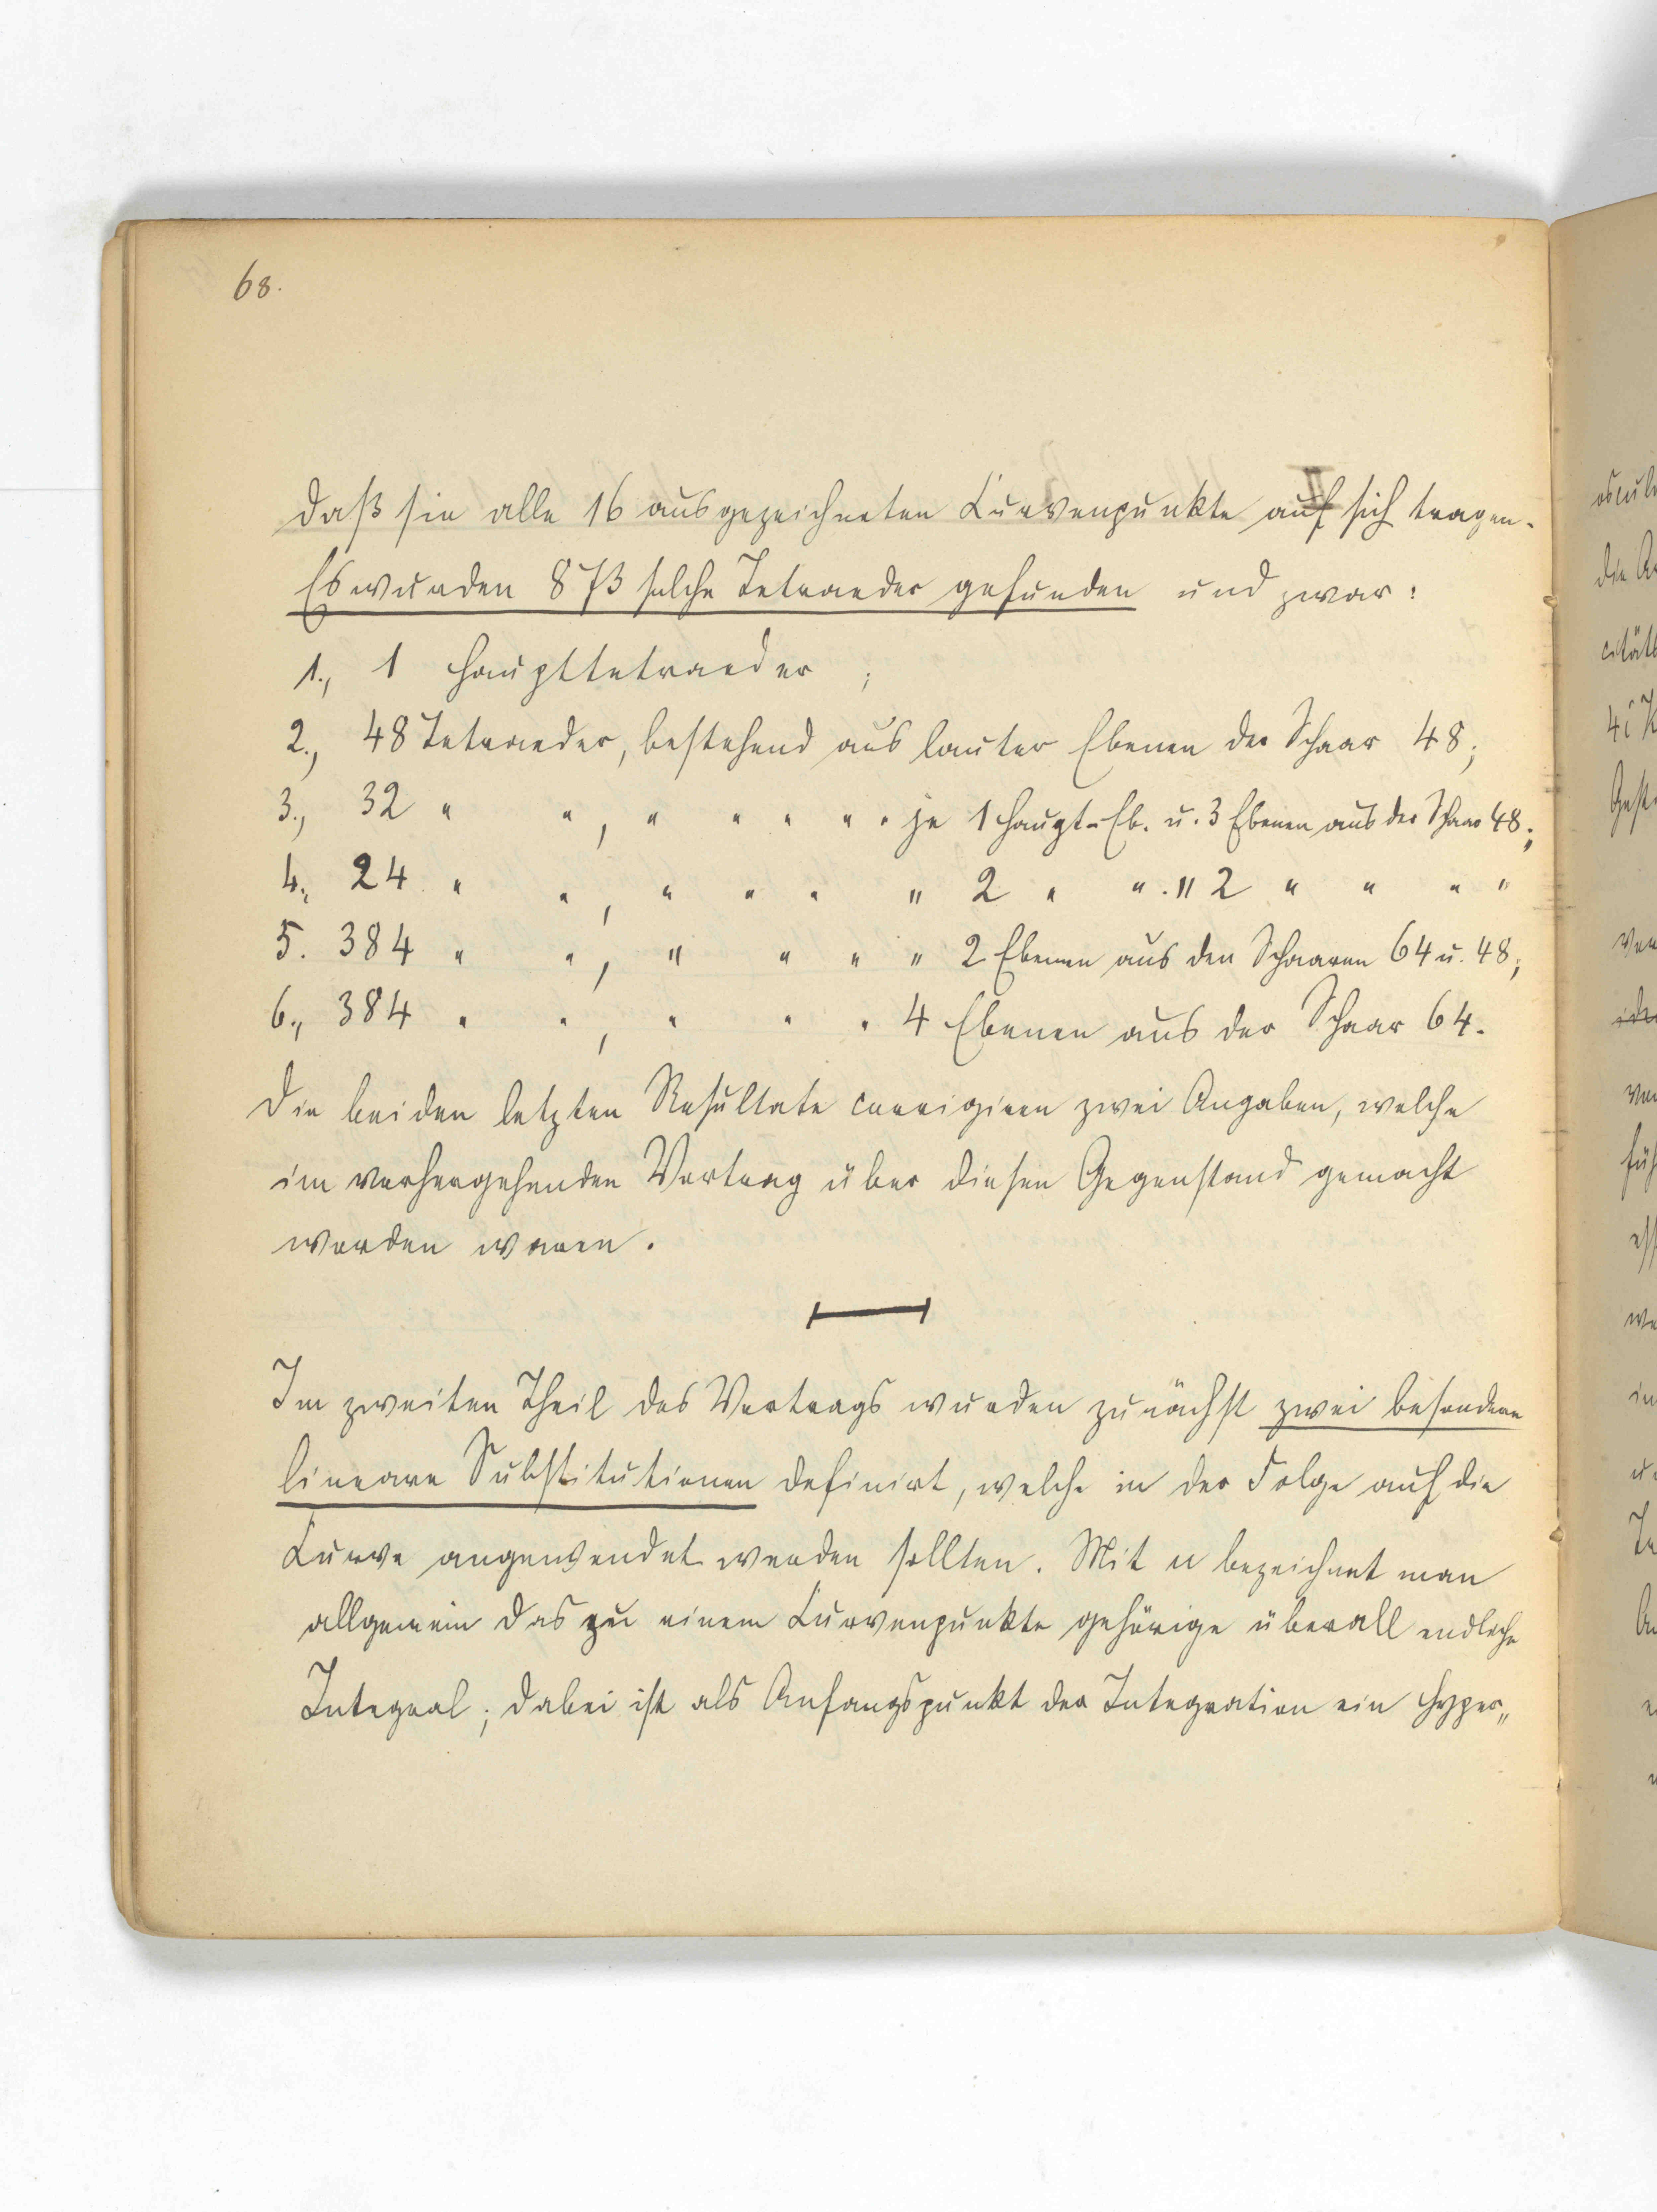 68.
daß sie alle 16 ausgezeichneten Curvenpunkte auf sich tragen.
Es wurden 873 solche Tetraeder gefunden und zwar:
1., 1 Haupttetraeder ;
2., 48 Tetraeder, bestehend aus lauter Ebenen der Schaar 48;
3., 32 " ", " " " " " je 1 Haupt-Eb. u. 3 Ebenen aus der Schaar 48;
4., 24 " ", " " " " 2 " " . " 2 " " " "
5. 384 " ", " " " " 2 Ebenen aus den Schaaren 64 u. 48;
6., 384 " ", " " " 4 Ebenen aus der Schaar 64.
Die beiden letzten Resultate corrigiren zwei Angaben, welche
im vorhergehenden Vortrag über diesen Gegenstand gemacht
worden waren.
Im zweiten Theil des Vortrags wurden zunächst zwei besondere
lineare Substitutionen definirt, welche in der Folge auf die
Curve angewendet werden sollten. Mit u bezeichnet man
allgemein das zu einem Curvenpunkte gehörige überall endliche
Integral; dabei ist als Anfangspunkt der Integration ein Hyper„